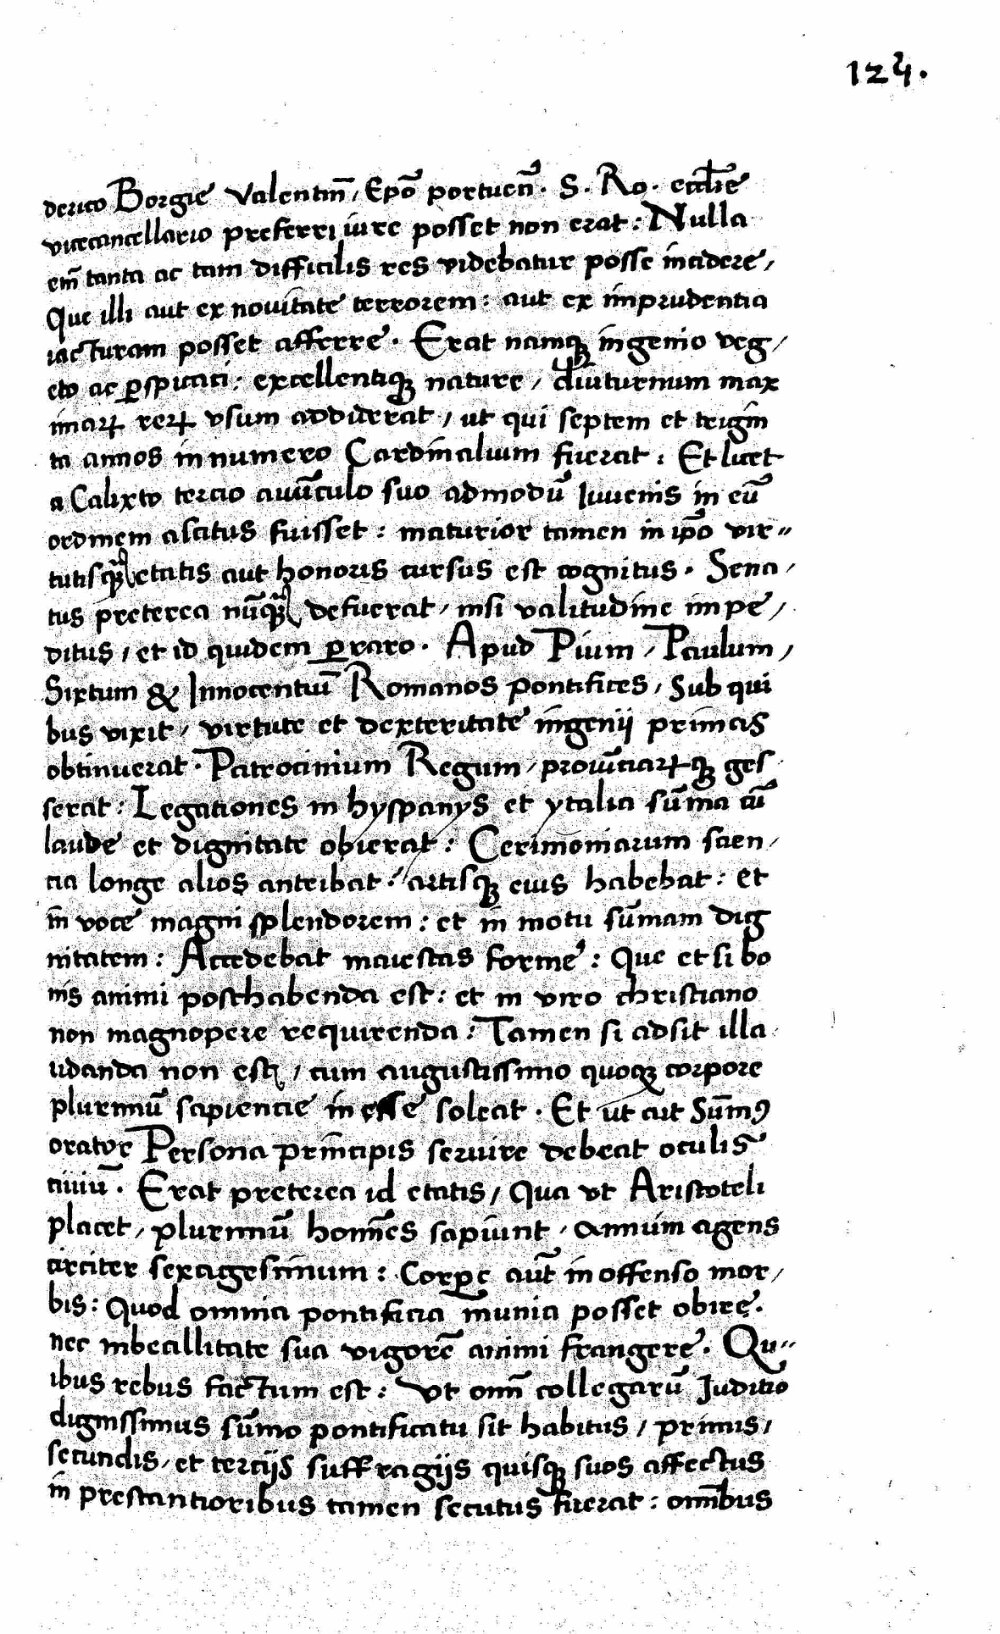 124.
derico Borgie Valentin̄, Ep̄o portuen̄. S. Ro. eccl̄ie
vicecancellario preferri iure posset non erat: Nulla
em̄ tanta ac tam difficilis res videbatur posse incidere,
Que illi aut ex novitate terrorem: aut ex imprudentia
iacturam posset afferre. Erat namqꝫ ingenio veg,
eto ac ꝑspicaci: excellentiqꝫ nature, diuturnum max
imaꝝ reꝝ usum addiderat, ut qui septem et trigin
ta annos in numero Cardinalium fuerat: Et licet
a Calixto tercio avūculo suo admodū Iuvenis in eū
ordinem ascitus fuisset: maturior tamen in ip̄o vir=
tutis qꝫ etatis aut honoris cursus est cognitus. Sena,
tus preterea nūqꝫ defuerat, nisi valitudine impe,
ditus, et id quidem ꝑraro. Apud Pium, Paulum,
Sixtum & Innocentiū Romanos pontifices, Sub qui
bus vixit, virtute et dexteritate ingenij primas
obtinuerat. Patrocinium Regum, provīciaꝝqꝫ ges
serat: Legationes in hyspanys et ytalia sūma cū
laude et dignitate obierat: Cerimoniarum scien,
cia longe alios anteibat: artisqꝫ eius habebat: et
in voce magni splendorem: et in motu sūmam dig
nitatem: Accedebat maiestas forme: Que et si bo
nis animi posthabenda est: et in viro christiano
non magnopere requirenda: Tamen si adsit illa
udanda non est, cum augustissimo quoqꝫ corpore
plurimū sapiencie in esse soleat. Et ut ait Sūmꝰ
orator Persona principis servire debeat oculis
civiū. Erat preterea id etatis, Qua ut Aristoteli
placet, plurimū homīes sapiunt, annum agens
circiter sexagesimum: Corꝑe aūt inoffenso mor,
bis: Quod omnia pontificia munia posset obire.
nec imbecillitate sua vigorē animi frangere. Qu=
ibus rebus factum est: Ut omn̄ collegarū Juditio
dignissimus sūmo pontificatu sit habitus, primis,
secundis, et tercijs suffragijs quisqꝫ suos affectus
in prestantioribus tamen secutus fuerat: omībus